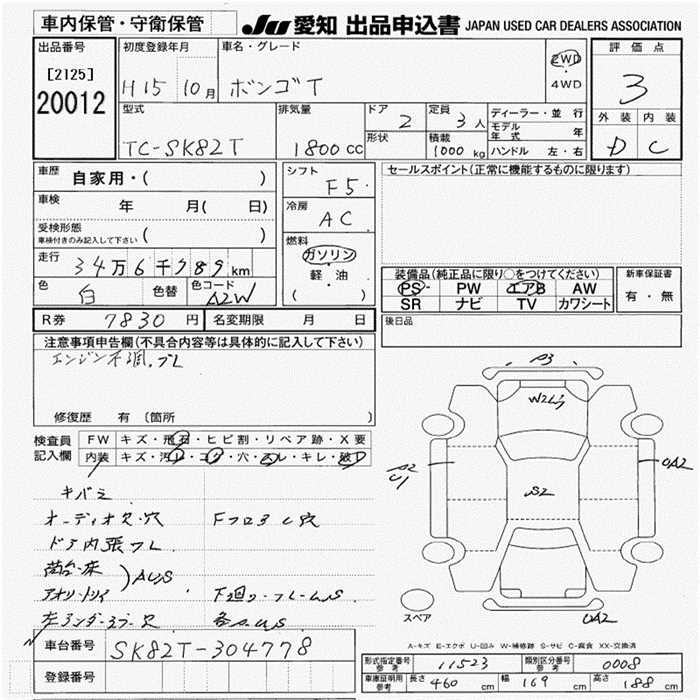 車内保管・守衛保管
JU 愛知 出品申込書 JAPAN USED CAR DEALERS ASSOCIATION
出品番号
[2125]
20012
初度登録年月
H15 10月
車名・グレード
ボンゴT
2WD
・
4WD
評価点
3
外装 内装
D C
型式
TC-SK82T
排気量
1800 cc
ドア 2
形状
定員 3人
積載 1000 kg
ディーラー・並行
モデル年式 年
ハンドル 左・右
車歴 自家用・( )
車検 年 月( 日)
受検形態
車検付きのみ記入して下さい ( )
走行 34万6千789km
色 白 色替 色コード A2W
シフト
F5
冷房
AC
燃料
ガソリン
軽・油
( )
セールスポイント(正常に機能するものに限ります)
装備品(純正品に限り○をつけてください)
PS PW エアB AW
SR ナビ TV カワシート
新車保証書
有・無
R券 7830円 名変期限 月 日
後日品
注意事項申告欄(不具合内容等は具体的に記入して下さい)
エンジン不調,フレ
修復歴 有 (箇所
検査員
記入欄
FW キズ・飛石・ヒビ割・リペア跡・X要
内装 キズ・汚レ・コゲ・穴・スレ・キレ・破レ
キバミ
オーディオ欠・穴 Fフロアし穴
ドア内張フレ
荷台・床
AUS
P3
S2
A2
U1
UA2
UA2
スペア
A-キズ E-エクボ U-凹み W-補修跡 S-サビ C-腐食 XX-交換済
車台番号 SK82T-304778
登録番号
形式指定番号 参考 11523 類別区分番号 参考 0008
車庫証明用 参考 長さ 460 cm 幅 169 cm 高さ 188 cm